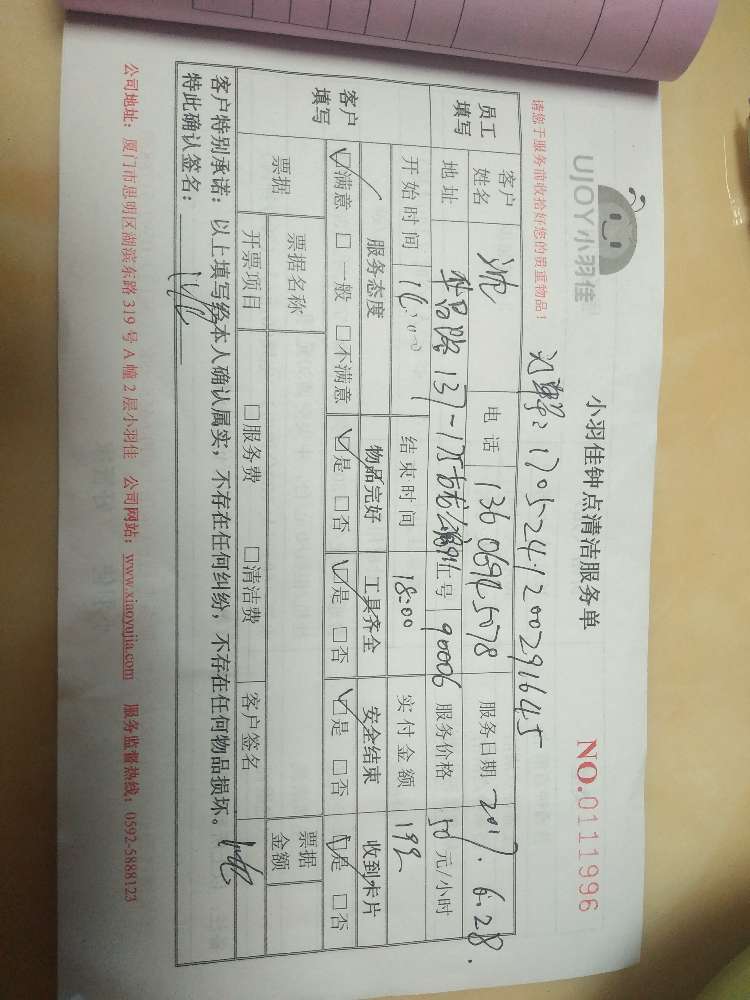 UJOY小羽佳
小羽佳钟点清洁服务单
NO.0111996
请您于服务前收拾好您的贵重物品！
1705241200291645
员工填写 客户姓名 沈 电话 13606945078 服务日期 2017.6.28.
地址 137-17 工号 90006 服务价格 50元/小时
开始时间 16:00 结束时间 18:00 实付金额 192
客户填写 服务态度 物品完好 工具齐全 安全结束 收到卡片
☑满意 □一般 □不满意 ☑是 □否 ☑是 □否 ☑是 □否 ☑是 □否
票据 票据名称 票据金额
开票项目 □服务费 □清洁费 客户签名
客户特别承诺：以上填写经本人确认属实，不存在任何纠纷，不存在任何物品损坏。
特此确认签名：
公司地址：厦门市思明区湖滨东路319号A幢2层小羽佳 公司网站：www.xiaoyujia.com 服务监督热线：0592-5888123